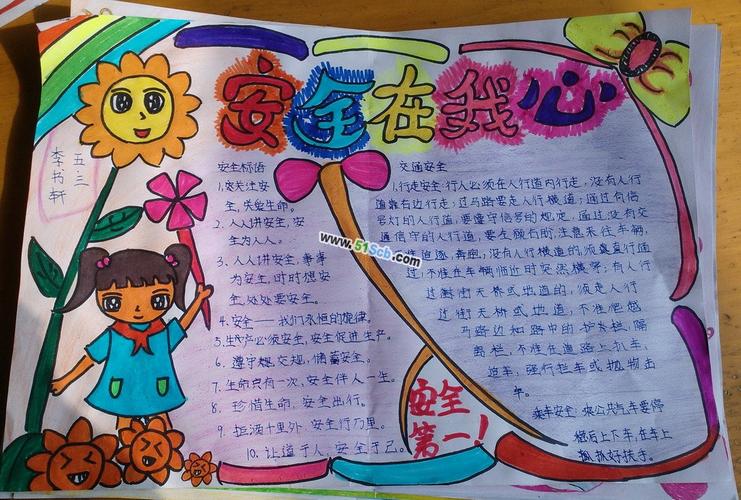 安全在我心
五.三
李书轩
安全标语
1.突关注安
全,失爱生命。
2.人人讲安全,安
全为人人。
3.人人讲安全,事事
为安全,时时想安
全,处处要安全。
4.安全——我们永恒的旋律。
5.生产必须安全,安全促进生产。
6.遵守规,交规,储蓄安全。
7.生命只有一次,安全伴人一生。
8.珍惜生命,安全出行。
9.拒酒十里外,安全行万里。
10.让道于人,安全于己。
交通安全
1.行走安全:行人必须在人行道内行走,没有人行
道靠右边行走;过马路要走人行横道;通过有信
号灯的人行道,要遵守信号的规定,通过没有交
通信守的人行道,要左顾右盼,注意来往车辆,
追逐,奔跑;没有人行横道的,须直行通
过,不准在车辆临近时突然横穿;有人行
过街天桥或地道的,须走人行
过街天桥或地道;不准爬
马路边和路中的护栏,隔
离栏,不准在道路上扒车,
追车,强行拦车或抛物击
车。
乘车安全:乘公共汽车要停
稳后上下车,在车上
抓好扶手。
安全
第一!
www.51Scb.com